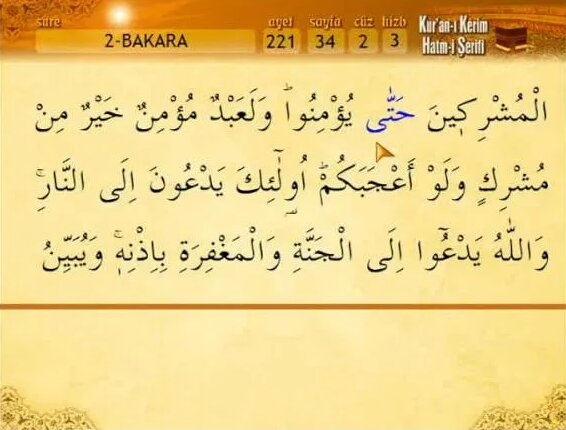 sûre
ayet sayfa cüz hizb
2-BAKARA 221 34 2 3
Kur'an-ı Kerim
Hatm-i Şerifi
الْمُشْرِكٖينَ حَتّٰى يُؤْمِنُواؕ وَلَعَبْدٌ مُؤْمِنٌ خَيْرٌ مِنْ
مُشْرِكٍ وَلَوْ اَعْجَبَكُمْؕ اُولٰٓئِكَ يَدْعُونَ اِلَى النَّارِۚ
وَاللّٰهُ يَدْعُٓوا اِلَى الْجَنَّةِ وَالْمَغْفِرَةِ بِاِذْنِهٖۚ وَيُبَيِّنُ